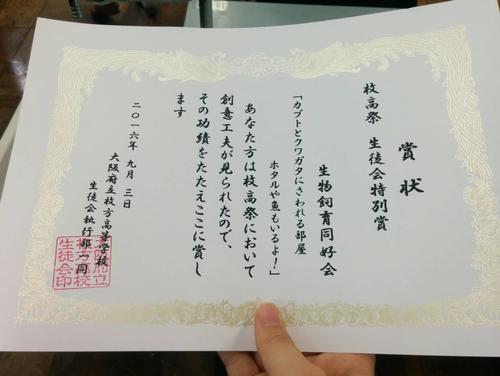 賞状
枚高祭 生徒会特別賞
生物飼育同好会
「カブトとクワガタにさわれる部屋
ホタルや魚もいるよ!」
あなた方は枚高祭において
創意工夫が見られたので、
その功績をたたえここに賞し
ます
二〇一六年 九月 三日
大阪府立枚方高等学校
生徒会執行部一同
大阪府立
枚方高校
生徒会印